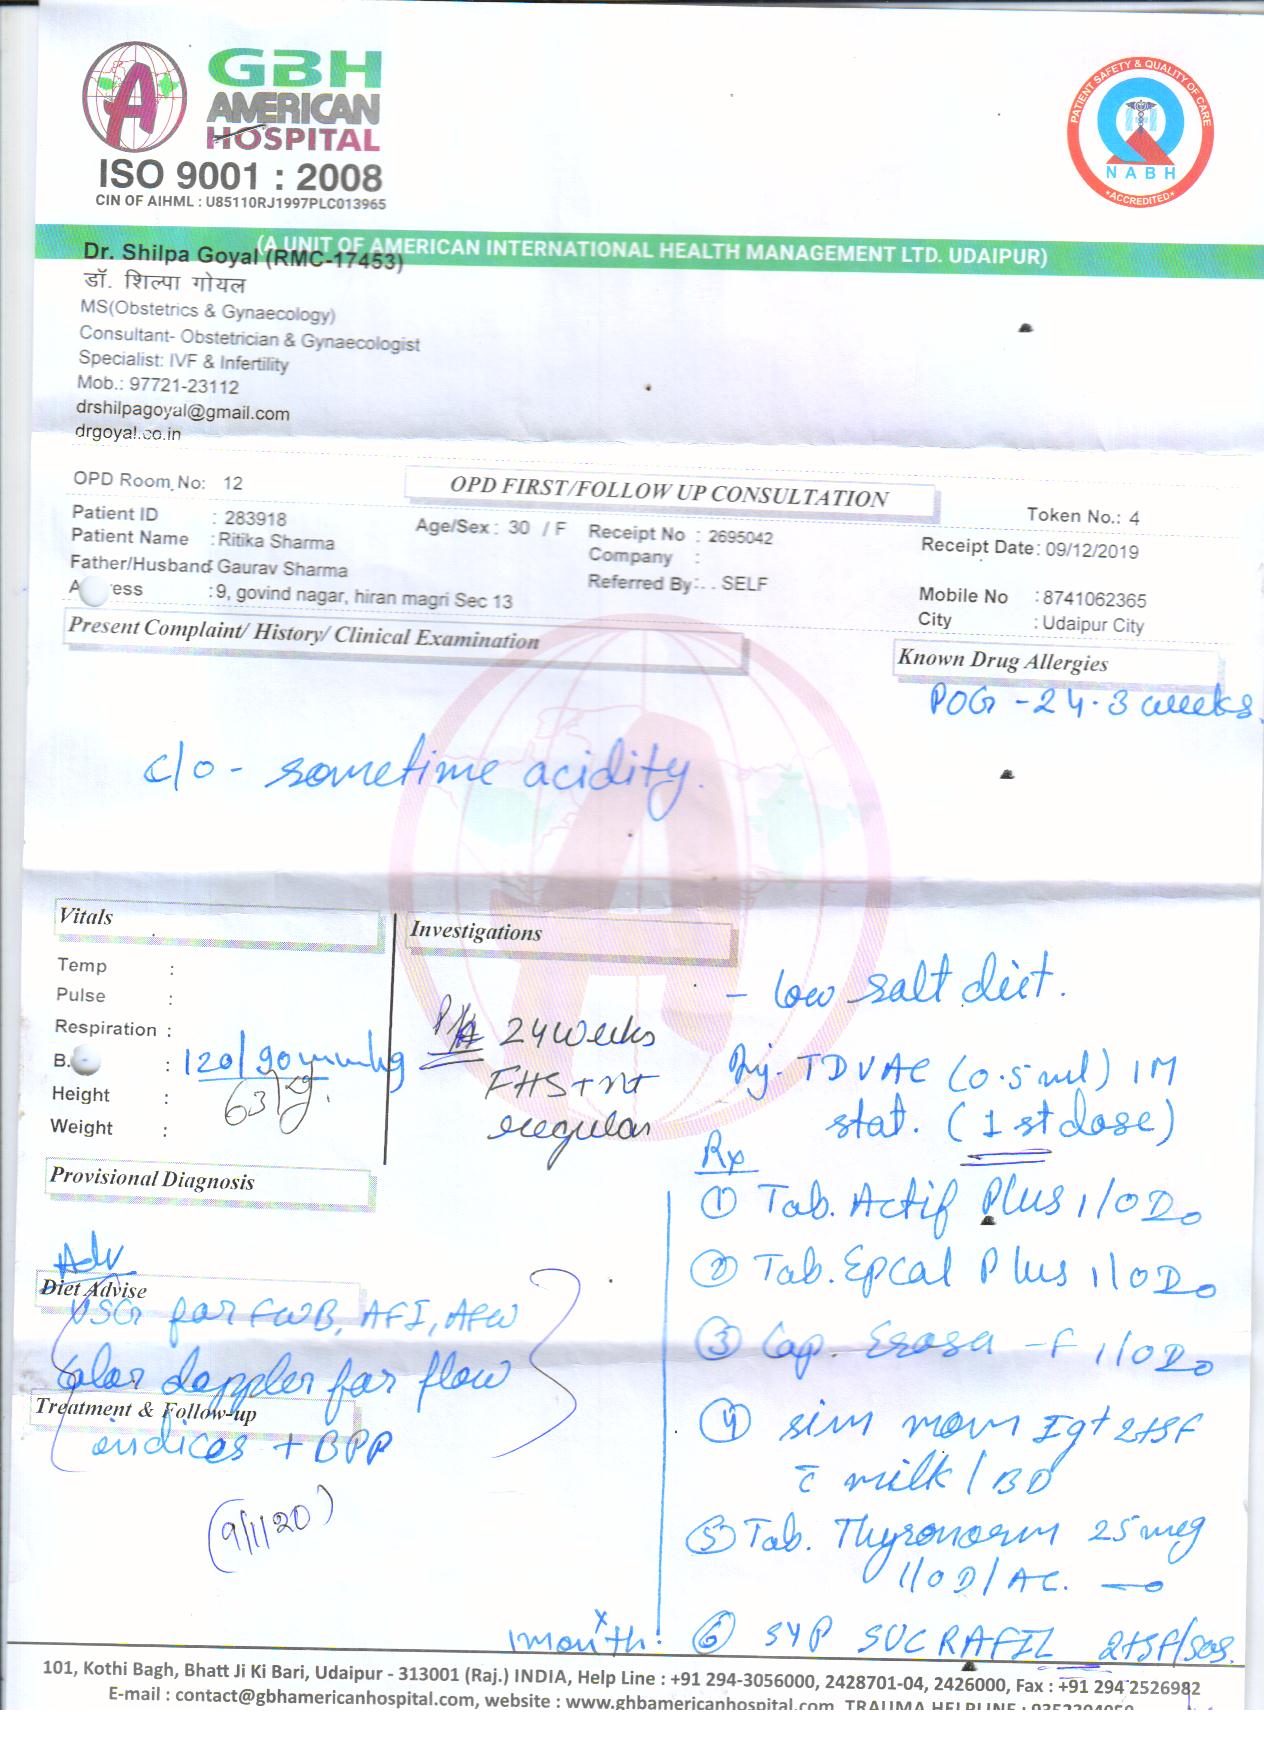 GBH
AMERICAN
HOSPITAL
ISO 9001 : 2008
CIN OF AIHML : U85110RJ1997PLC013965
PATIENT SAFETY & QUALITY OF CARE
NABH
ACCREDITED
(A UNIT OF AMERICAN INTERNATIONAL HEALTH MANAGEMENT LTD. UDAIPUR)
Dr. Shilpa Goyal (RMC-17453)
डॉ. शिल्पा गोयल
MS(Obstetrics & Gynaecology)
Consultant- Obstetrician & Gynaecologist
Specialist: IVF & Infertility
Mob.: 97721-23112
drshilpagoyal@gmail.com
drgoyal.co.in
OPD Room No: 12
OPD FIRST/FOLLOW UP CONSULTATION
Token No.: 4
Patient ID : 283918
Age/Sex : 30 / F
Receipt No : 2695042
Receipt Date: 09/12/2019
Patient Name : Ritika Sharma
Company :
Father/Husband: Gaurav Sharma
Referred By: . . SELF
Mobile No : 8741062365
A ess : 9, govind nagar, hiran magri Sec 13
City : Udaipur City
Present Complaint/ History/ Clinical Examination
Known Drug Allergies
POG - 24.3 weeks.
c/o - sometime acidity.
Vitals
Investigations
Temp :
Pulse :
Respiration :
B. : 120/90 mmhg
Height :
63 kg.
Weight :
P/A 24 weeks
FHS + nt
regular
- low salt diet.
Inj. TDVAC (0.5 ml) IM
stat. (1st dose)
Rx
① Tab. Actif Plus 1/OD
② Tab. Epcal Plus 1/OD
③ Cap. Erosa -F 1/OD
④ sim mom Igt 2tsf
c̄ milk / BD
⑤ Tab. Thyronorm 25 mcg
1/OD/AC.
⑥ SYP SUCRAFIL 2tsf/sos.
x
1 month.
Provisional Diagnosis
Adv
Diet Advise
USG for FWB, AFI, AFW
Color doppler for flow
Treatment & Follow-up
indices + BPP
(9/1/20)
101, Kothi Bagh, Bhatt Ji Ki Bari, Udaipur - 313001 (Raj.) INDIA, Help Line : +91 294-3056000, 2428701-04, 2426000, Fax : +91 294 2526982
E-mail : contact@gbhamericanhospital.com, website : www.ghbamericanhospital.com TRAUMA HELPLINE :